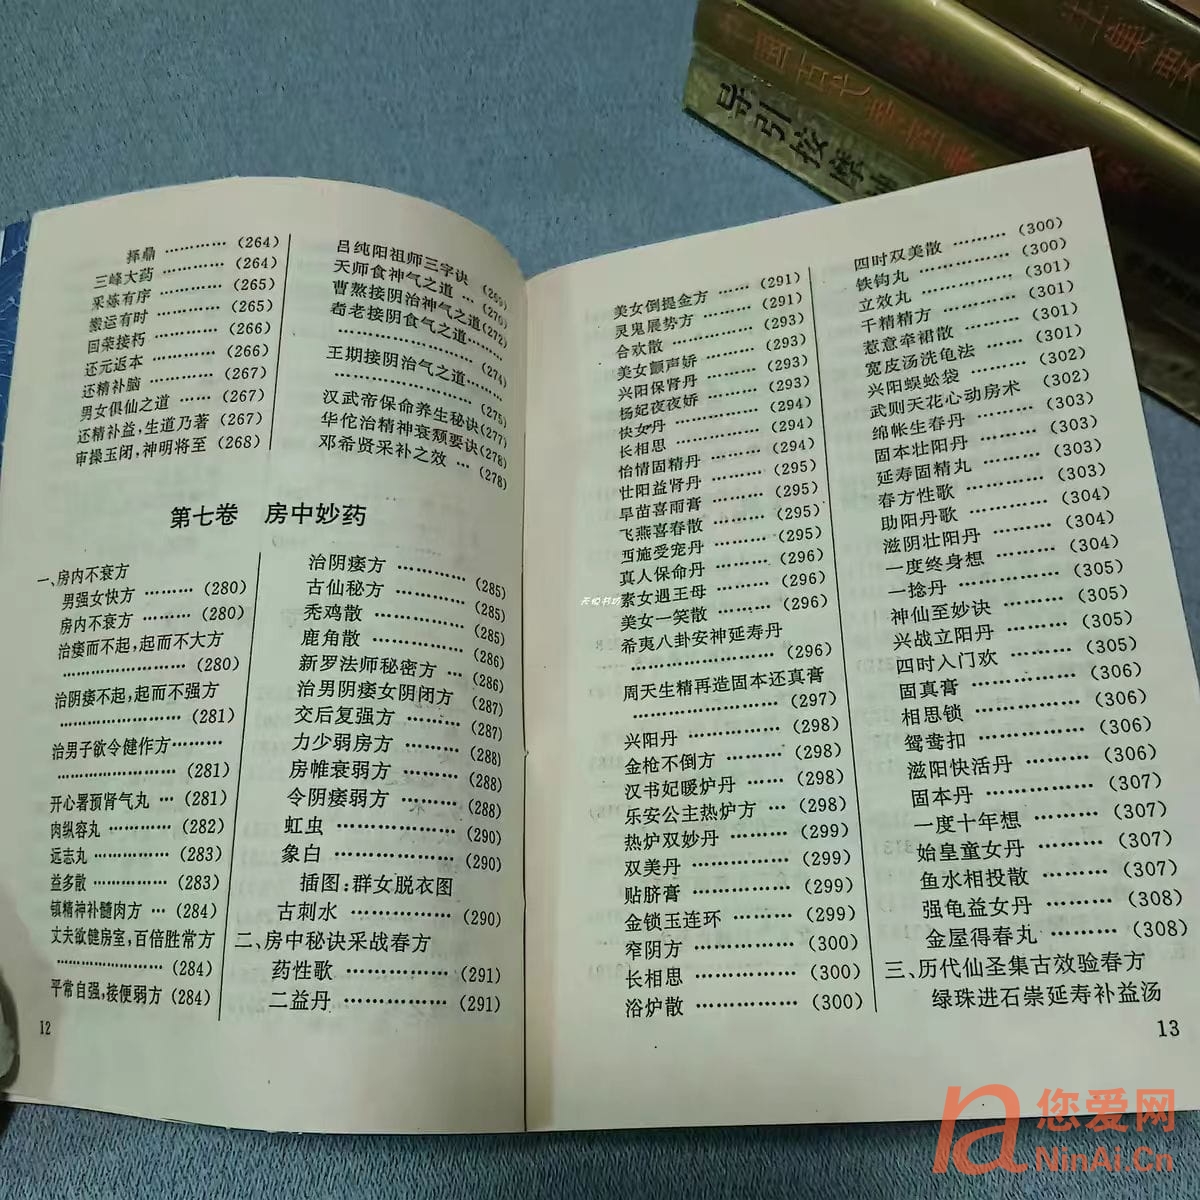 择鼎 ………… (264)
三峰大药 ………… (264)
采炼有序 ………… (265)
搬运有时 ………… (265)
回荣接朽 ………… (266)
还元返本 ………… (266)
还精补脑 ………… (267)
男女俱仙之道 …… (267)
还精补益,生道乃著 (267)
审操玉闭,神明将至 (268)
吕纯阳祖师三字诀 (269)
天师食神气之道 … (270)
曹熬接阴治神气之道(272)
耇老接阴食气之道………
……………………… (274)
王期接阴治气之道………
……………………… (275)
汉武帝保命养生秘诀(277)
华佗治精神衰颓要诀(278)
邓希贤采补之效 … (278)
第七卷 房中妙药
一、房内不衰方
男强女快方 ……… (280)
房内不衰方 ……… (280)
治痿而不起,起而不大方
…………………… (280)
治阴痿不起,起而不强方
…………………… (281)
治男子欲令健作方………
…………………… (281)
开心署预肾气丸 … (281)
肉纵容丸 ………… (282)
远志丸 …………… (283)
益多散 …………… (283)
镇精神补髓肉方 … (284)
丈夫欲健房室,百倍胜常方
………………… (284)
平常自强,接便弱方 (284)
治阴痿方 ………… (285)
古仙秘方 ………… (285)
秃鸡散 …………… (285)
鹿角散 …………… (286)
新罗法师秘密方 … (286)
治男阴痿女阴闭方 (287)
交后复强方 ……… (287)
力少弱房方 ……… (288)
房帷衰弱方 ……… (288)
令阴痿弱方 ……… (288)
虹虫 ……………… (290)
象白 ……………… (290)
插图:群女脱衣图
古刺水 …………… (290)
二、房中秘诀采战春方
药性歌 …………… (291)
二益丹 …………… (291)
12
美女倒提金方 …… (291)
灵鬼展势方 ……… (291)
合欢散 …………… (293)
美女颤声娇 ……… (293)
兴阳保肾丹 ……… (293)
杨妃夜夜娇 ……… (293)
快女丹 …………… (294)
长相思 …………… (294)
怡情固精丹 ……… (294)
壮阳益肾丹 ……… (295)
旱苗喜雨膏 ……… (295)
飞燕喜春散 ……… (295)
西施受宠丹 ……… (295)
真人保命丹 ……… (296)
素女遇王母 ……… (296)
美女一笑散 ……… (296)
希夷八卦安神延寿丹
…………………… (296)
周天生精再造固本还真膏
…………………… (297)
兴阳丹 …………… (298)
金枪不倒方 ……… (298)
汉书妃暖炉丹 …… (298)
乐安公主热炉方 … (298)
热炉双妙丹 ……… (299)
双美丹 …………… (299)
贴脐膏 …………… (299)
金锁玉连环 ……… (299)
窄阴方 …………… (300)
长相思 …………… (300)
浴炉散 …………… (300)
四时双美散 ……… (300)
铁钩丸 …………… (300)
立效丸 …………… (301)
千精精方 ………… (301)
惹意牵裙散 ……… (301)
宽皮汤洗龟法 …… (301)
兴阳蜈蚣袋 ……… (302)
武则天花心动房术 (302)
绵帐生春丹 ……… (303)
固本壮阳丹 ……… (303)
延寿固精丸 ……… (303)
春方性歌 ………… (303)
助阳丹歌 ………… (304)
滋阴壮阳丹 ……… (304)
一度终身想 ……… (304)
一捻丹 …………… (305)
神仙至妙诀 ……… (305)
兴战立阳丹 ……… (305)
四时入门欢 ……… (305)
固真膏 …………… (306)
相思锁 …………… (306)
鸳鸯扣 …………… (306)
滋阳快活丹 ……… (306)
固本丹 …………… (307)
一度十年想 ……… (307)
始皇童女丹 ……… (307)
鱼水相投散 ……… (307)
强龟益女丹 ……… (308)
金屋得春丸 ……… (308)
三、历代仙圣集古效验春方
绿珠进石崇延寿补益汤
13
导引按摩
天悦书坊
您爱网
NinAi.Cn